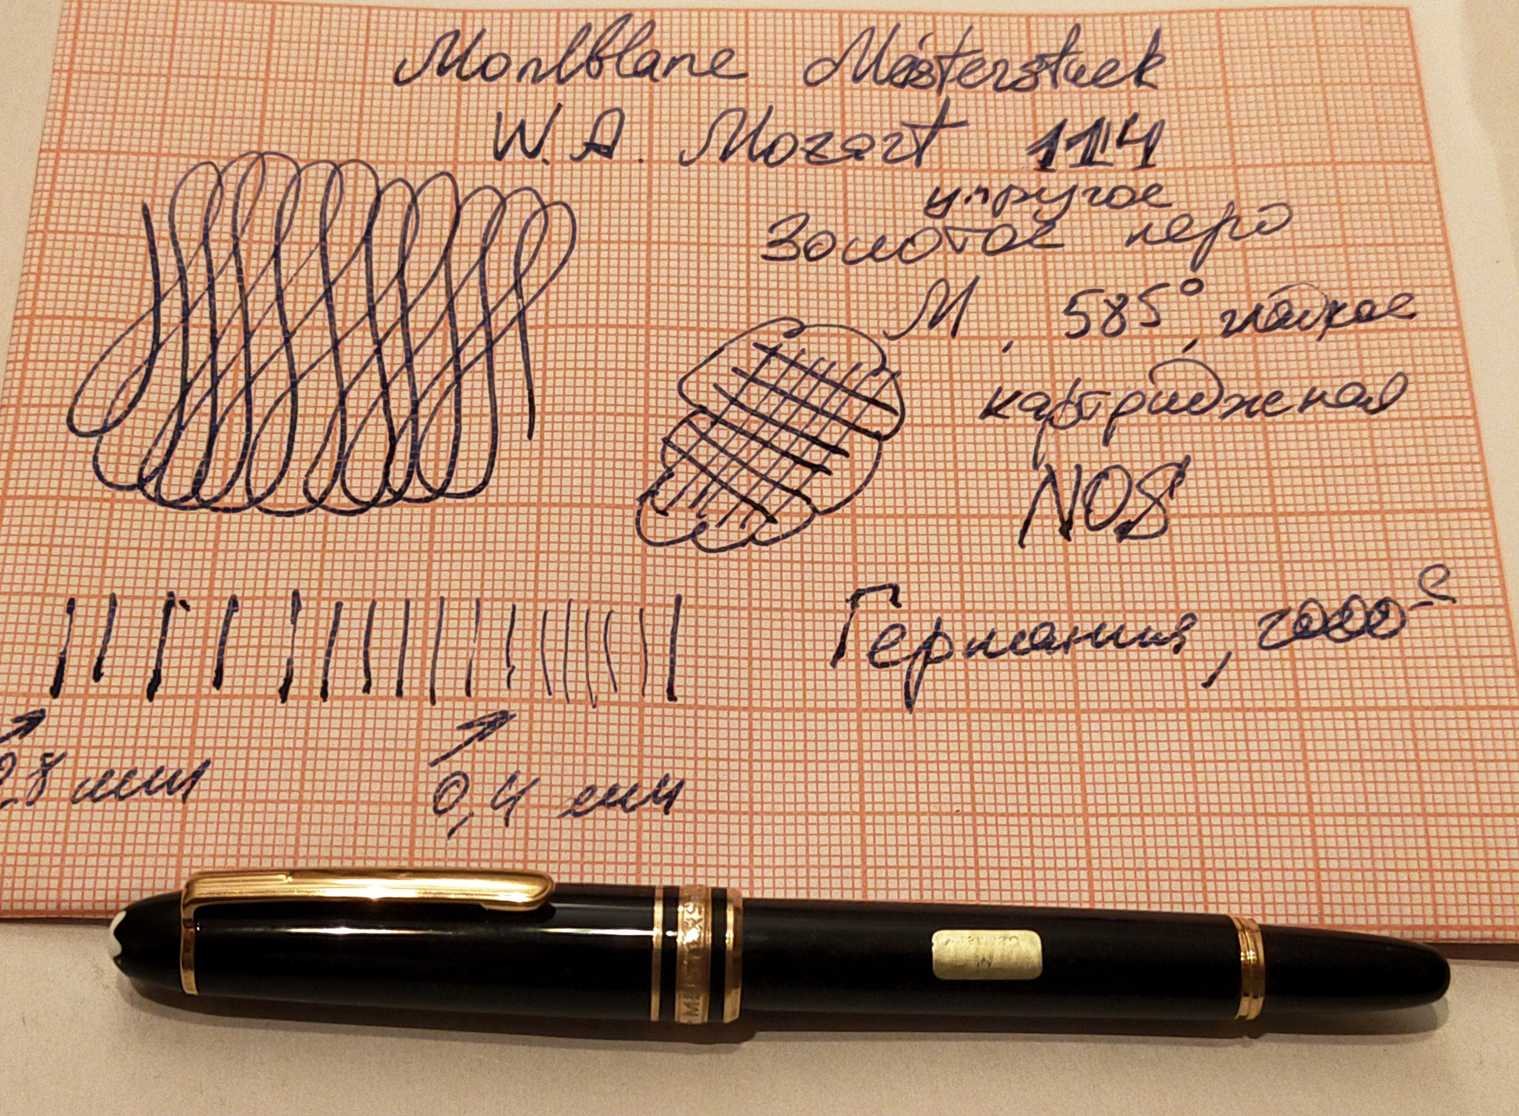 Montblanc Meisterstuck
W.A. Mozart 114
упругое
Золотое перо
М, 585°, гладкое
картриджная
NOS
Германия, 2000-е
0,8 мм
0,4 мм
M